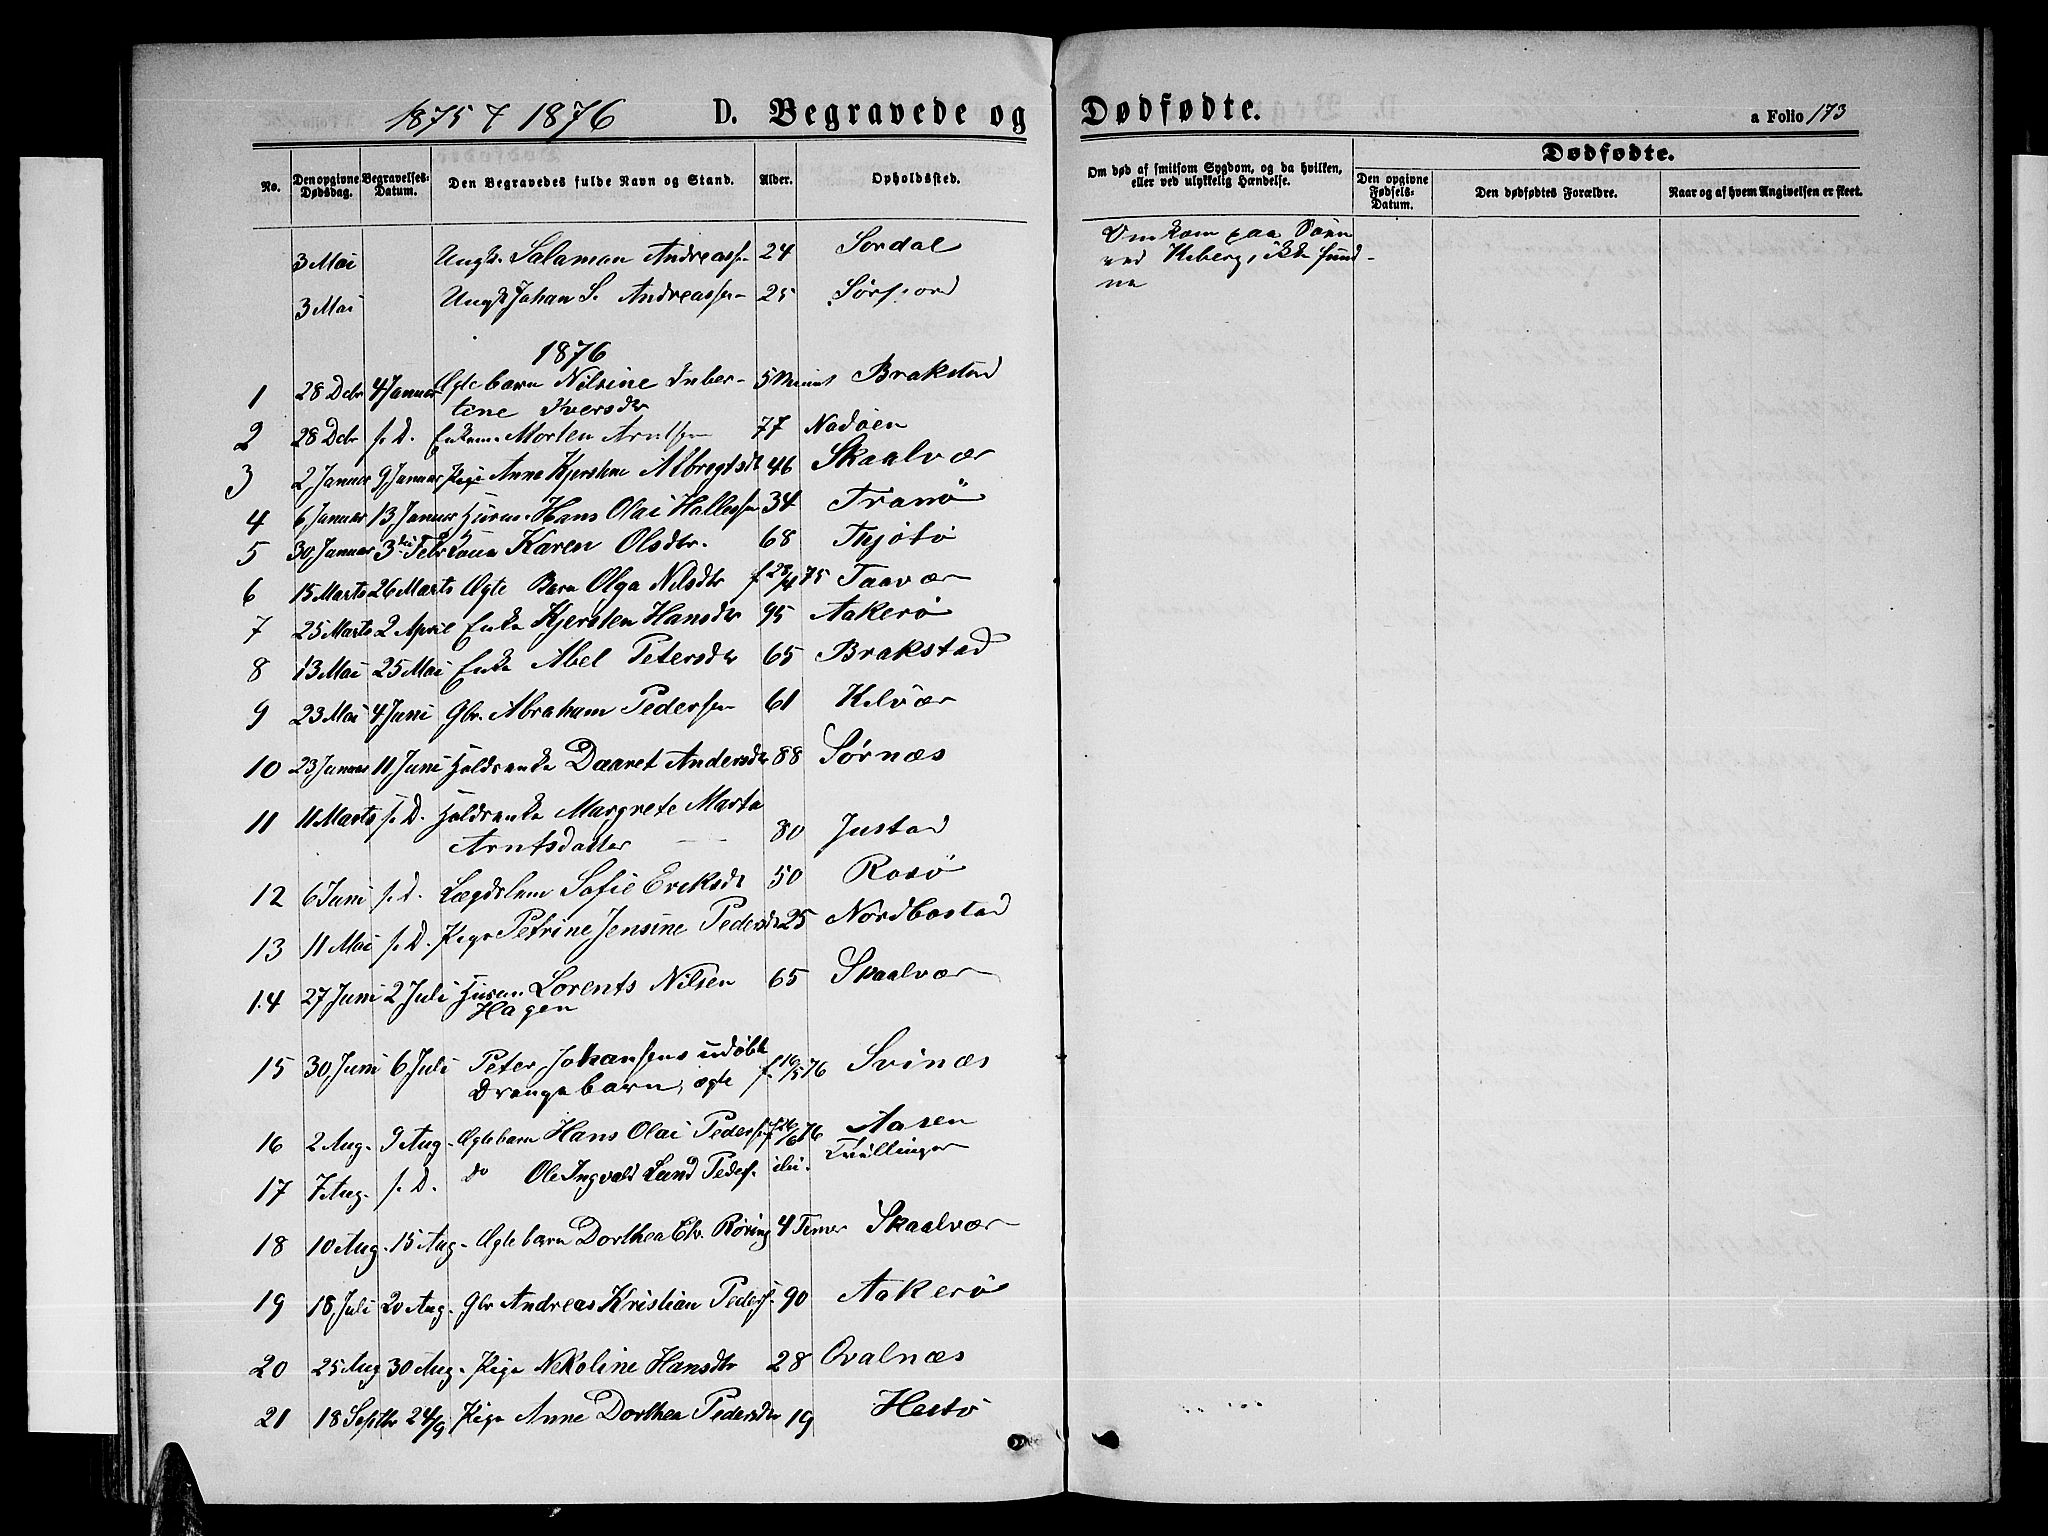 1875 & 1876 D. Begravede og Dødfødte. a Folio 173
No. Den opgivne Dødsdag. Begravelses-Datum. Den Begravedes fulde Navn og Stand. Alder. Opholdssted. Om død af smitsom Sygdom, og da hvilken, eller ved ulykkelig Hændelse. Dødfødte.
Den opgivne Fødsels-Datum. Den dødfødtes Forældre. Naar og af hvem Angivelsen er skeet.
3 Mai Ungk. Salamon Andreassen 24 Sørdal Omkom paa Søen
ved Kiberg, ikke fund-
ne
3 Mai Ungk Johan S. Andreassen 25 Sørfjord
1876
1 28 Dcbr 4 Januar Ægte barn Nilsine Inber- 5 Brakstad
tine Iversdtr
2 28 Dcbr s. D. Enkem. Morten Arntsen 77
3 2 Januar 9 Januar Pige Anne Kjerstine Albregtsdt 46 Skaalvær
4 6 Januar 13 Januar Husm. Hans Olai Hallessen 34 Tranø
5 30 Januar 3 Febr Kone Karen Olsdtr. 68 Thjøtø
6 15 Marts 26 Marts Ægte Barn Olga Nilsdtr f 28/4 75 Taavær
7 25 Marts 2 April Enke Kjersten Hansdtr 95 Aakerø
8 13 Mai 25 Mai Enke Abel Petersdtr 65 Brakstad
9 23 Mai 4 Juni Gbr. Abraham Pedersen 61 Kilvær
10 23 Januar 11 Juni Daaret Andersdtr 88 Sørnæs
11 11 Marts s. D. Margrete Marta
Arntsdatter 80 Justad
12 6 Juni s. D. Lægdslem Sofie Ericksdt 50 Rosø
13 11 Mai s. D. Pige Petrine Jensine Pedersdtr 25 Nordbostad
14 27 Juni 2 Juli Husm Lorents Nilsen 65 Skaalvær
Hagen
15 30 Juni 6 Juli Peter Johansens udøbte f 16/5 76 Svinæs
Drengebarn, ægte
16 2 Aug. 9 Aug. Ægte barn Hans Olai Pedersen 76 Aasen
Tvillinger
17 7 Aug. s. D. do Ole Ingvald Lund Peders.
18 10 Aug. 15 Aug. Ægte barn Dorthea El. Røring 4 Timer Skaalvær
19 18 Juli 20 Aug. Gbr Andreas Kristian Peders. 90 Aakerø
20 25 Aug 30 Aug. Pige Nekoline Hansdtr 28 Qvalnæs
21 18 Septbr 24/9 Pige Anne Dorthea Pedersdtr 19 Hestø